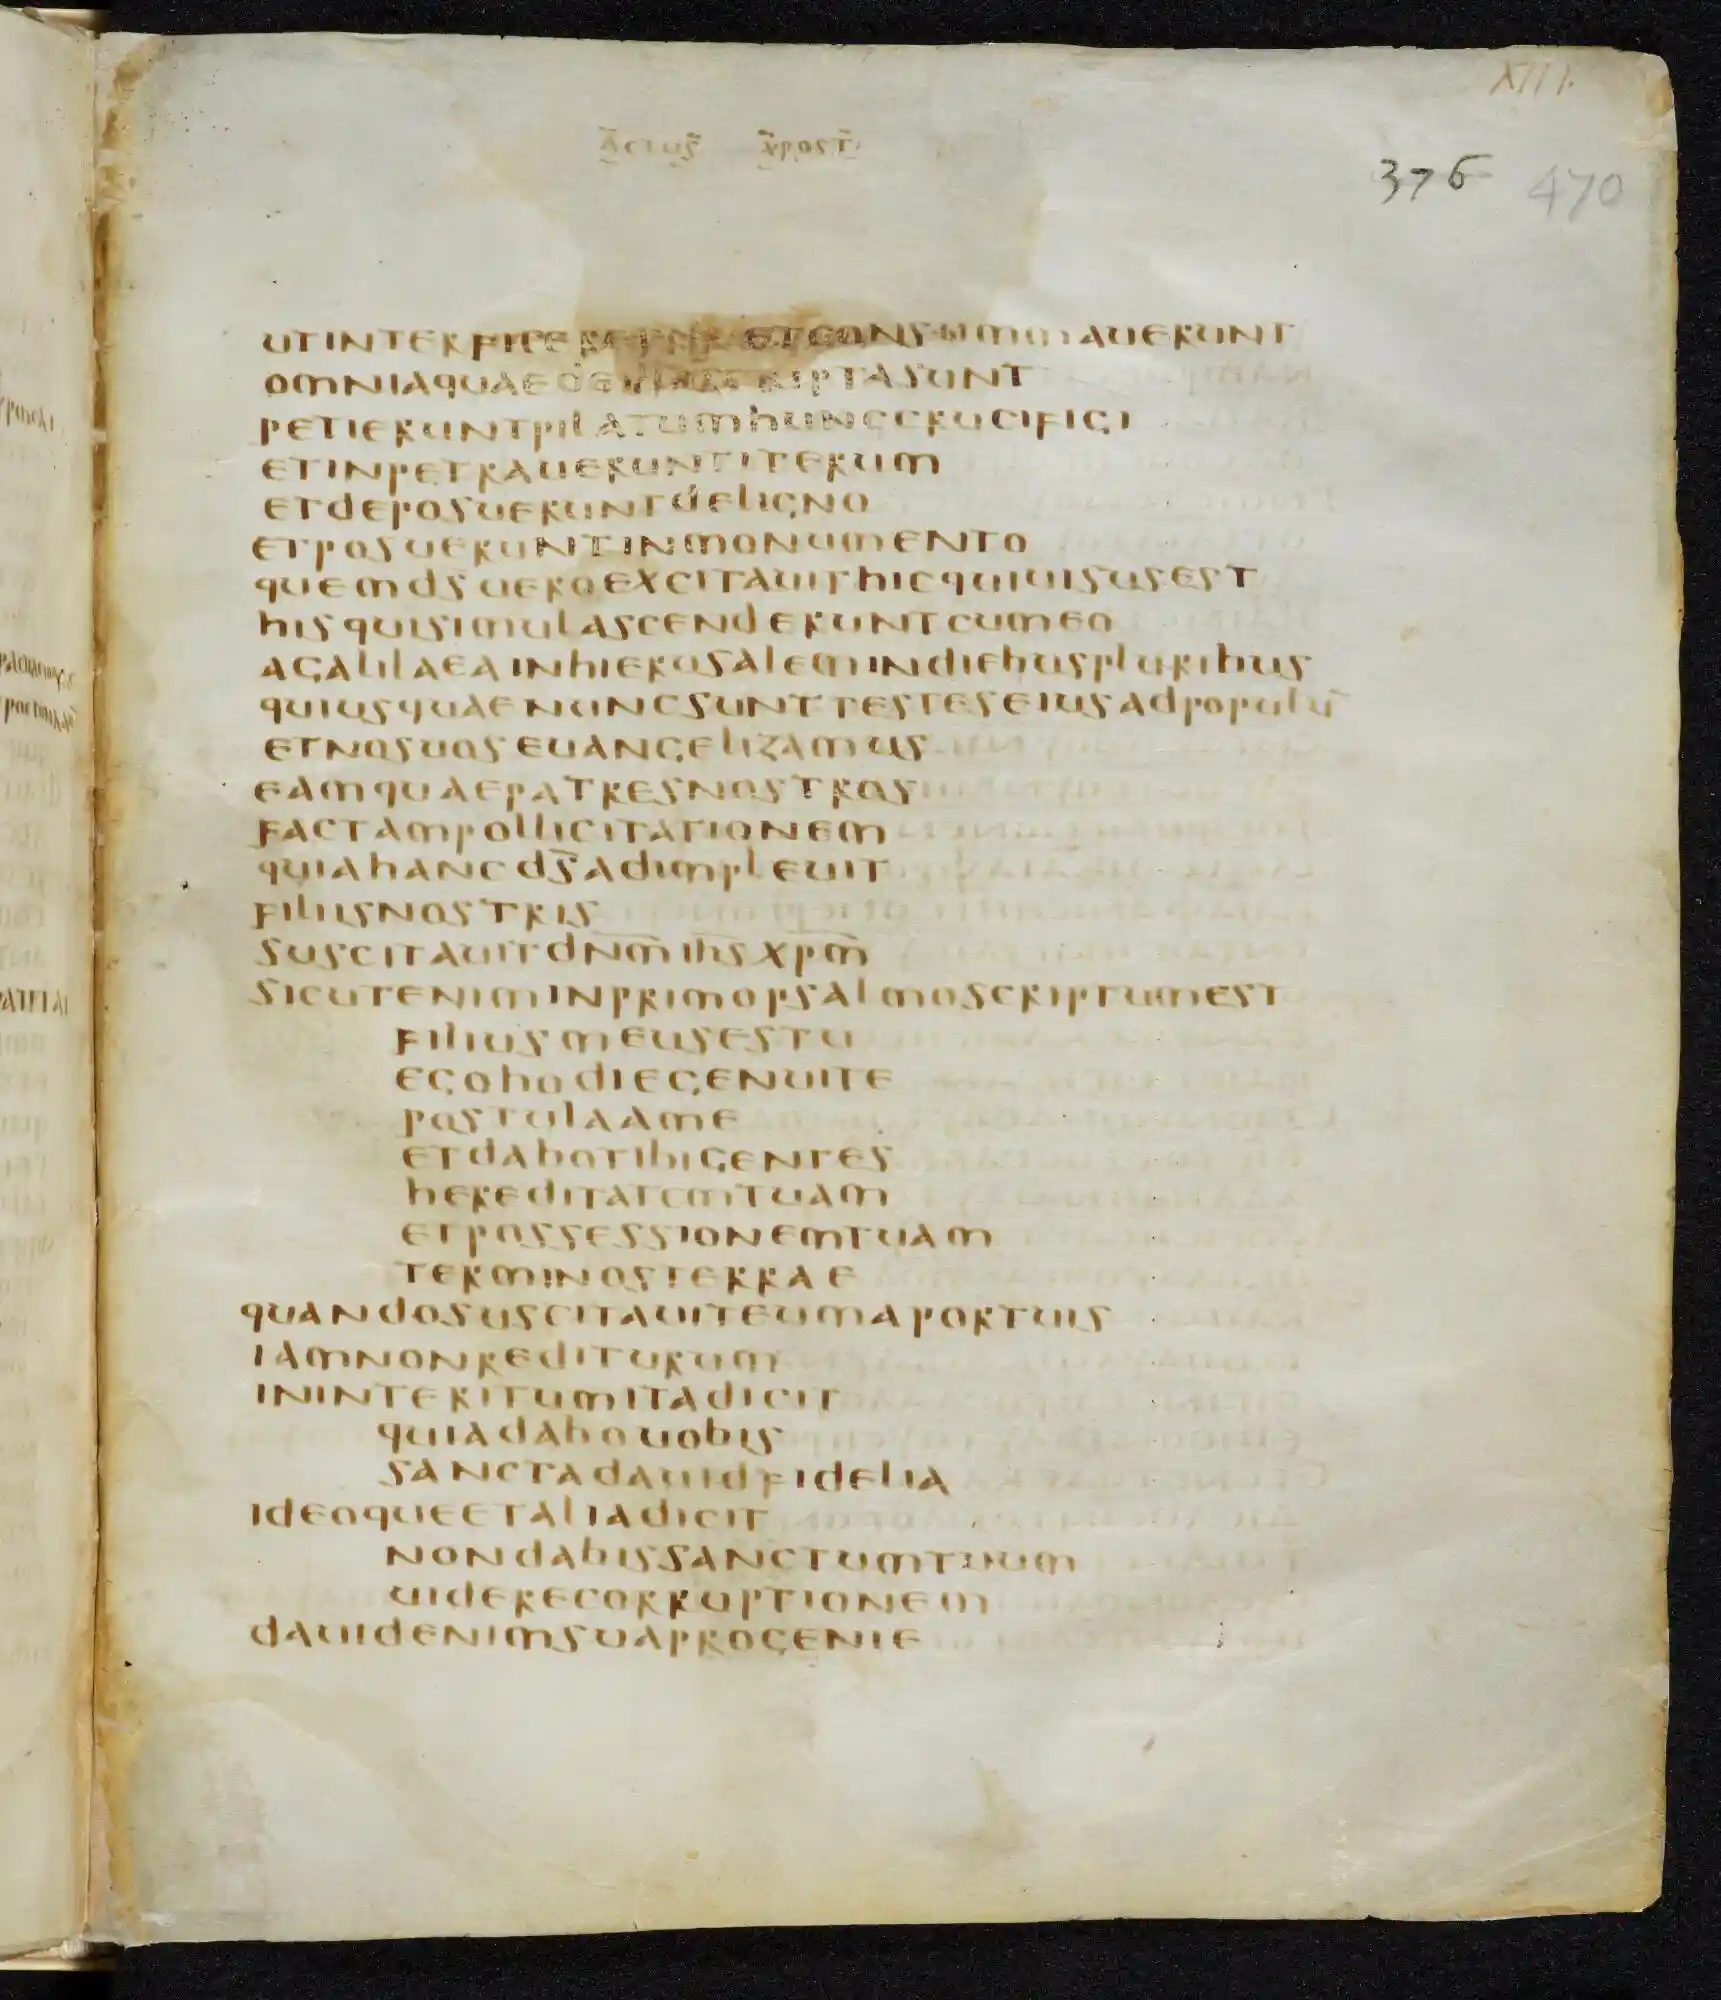 XIII
ACTUS APOST
376 470
UTINTERFICERETUR ETCONSUMMAUERUNT
OMNIAQUAEDEILLOSCRIPTASUNT
PETIERUNTPILATUMHUNCCRUCIFIGI
ETINPETRAUERUNTITERUM
ETDEPOSUERUNTDELIGNO
ETPOSUERUNTINMONUMENTO
QUEMD̅S̅UEROEXCITAUITHICQUIUISUSEST
HISQUISIMULASCENDERUNTCUMEO
AGALILAEAINHIERUSALEMINDIEBUSPLURIBUS
QUIUSQUAENUNCSUNTTESTESEIUSADPOPULU̅
ETNOSUOSEUANGELIZAMUS
EAMQUAEPATRESNOSTROS
FACTAMPOLLICITATIONEM
QUIAHANCD̅S̅ADIMPLEUIT
FILIISNOSTRIS
SUSCITAUITD̅N̅M̅I̅H̅S̅X̅P̅M̅
SICUTENIMINPRIMOPSALMOSCRIPTUMEST
FILIUSMEUSESTU
EGOHODIEGENUITE
POSTULAAME
ETDABOTIBIGENTES
HEREDITATEMTUAM
ETPOSSESSIONEMTUAM
TERMINOSTERRAE
QUANDOSUSCITAUITEUMAPORTUIS
IAMNONREDITURUM
ININTERITUMITADICIT
QUIADABOUOBIS
SANCTADAUIDFIDELIA
IDEOQUEETALIADICIT
NONDABISSANCTUMTUUM
UIDERECORRUPTIONEM
DAUIDENIMSUAPROGENIE